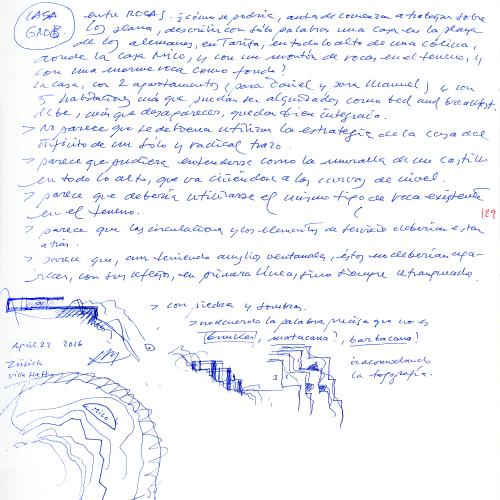 CASA entre ROCAS. ¿cómo se podría, antes de comenzar a trabajar sobre
GRDB. los planos, describir con sólo palabras una casa en la playa
de los alemanes, en Tarifa, en todo lo alto de una colina,
donde la casa Milo, y con un montón de rocas en el terreno, y
con una enorme roca como fondo?
La casa, con 2 apartamentos (para Daniel y para Manuel) y con
5 habitaciones más que puedan ser alquilados como bed and breakfast.
debe, más que desaparecer, quedar bien integrada.
> No parece que se debiera utilizar la estrategia de la casa del
infinito de un sólo y radical trazo.
> parece que pudiera entenderse como la muralla de un castillo
en todo lo alto, que va ciñéndose a las curvas de nivel.
> parece que debería utilizarse el mismo tipo de roca existente
en el terreno.
129
> parece que las circulaciones y los elementos de servicio deberían estar
atrás.
> parece que, aun teniendo amplios ventanales, éstos no deberían apa-
recer, con sus reflejos, en primera línea, sino siempre retranqueados.
> con piedra y sombras.
> no recuerdo la palabra precisa que no es
bunker, matacana, barbacana!
April 22 2016
Zürich
Villa Hatt
3
inacomodando
la topografía.
MILO